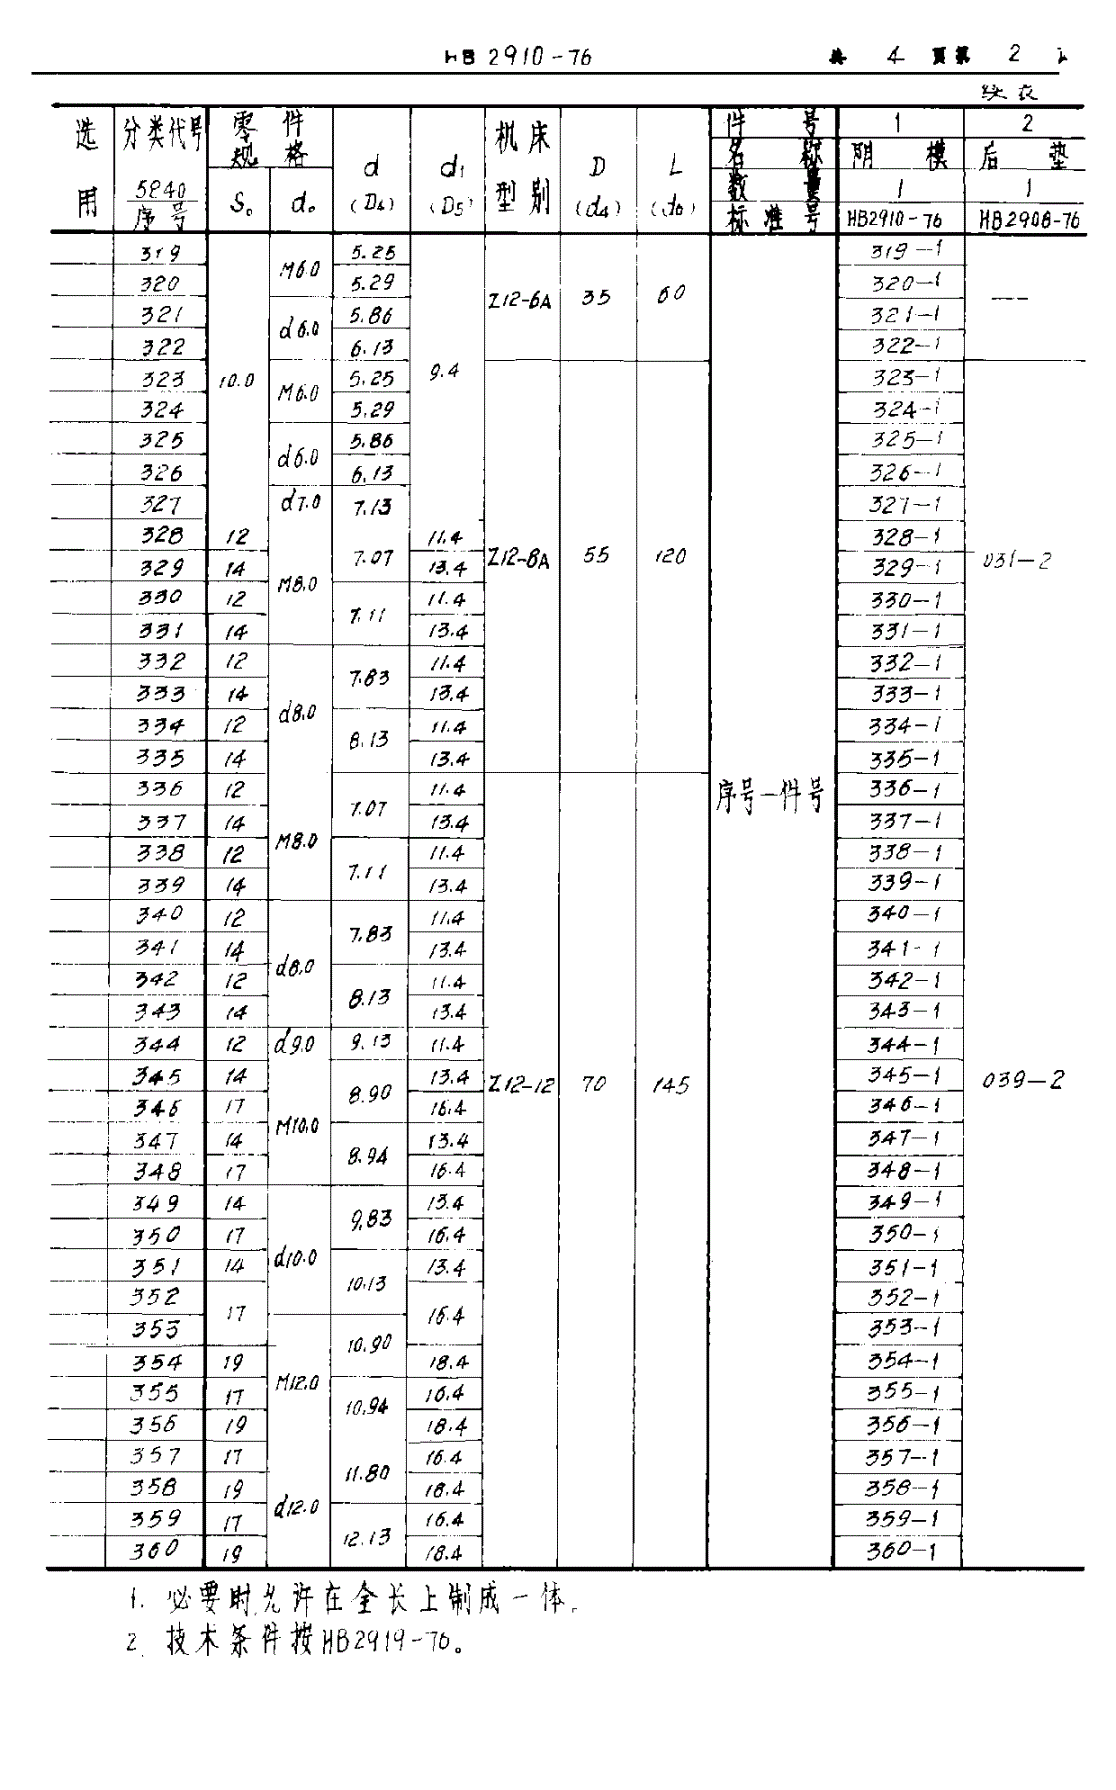 HB 2910-76 共 4 页 第 2
续表
选用 分类代号 5840 序号 零件规格 S₀ d₀ d (D₄) d₁ (D₅) 机床型别 D (d₄) L (d₆) 件号 1 2
名称 阴模 后垫
数量 1 1
标准号 HB2910-76 HB2908-76
319 10.0 M6.0 5.25 9.4 Z12-6A 35 60 序号-件号 319-1 —
320 5.29 320-1
321 d6.0 5.86 321-1
322 6.13 322-1
323 M6.0 5.25 Z12-8A 55 120 323-1 031-2
324 5.29 324-1
325 d6.0 5.86 325-1
326 6.13 326-1
327 d7.0 7.13 327-1
328 12 M8.0 7.07 11.4 328-1
329 14 13.4 329-1
330 12 7.11 11.4 330-1
331 14 13.4 331-1
332 12 d8.0 7.83 11.4 332-1
333 14 13.4 333-1
334 12 8.13 11.4 334-1
335 14 13.4 335-1
336 12 M8.0 7.07 11.4 Z12-12 70 145 336-1 039-2
337 14 13.4 337-1
338 12 7.11 11.4 338-1
339 14 13.4 339-1
340 12 d8.0 7.83 11.4 340-1
341 14 13.4 341-1
342 12 8.13 11.4 342-1
343 14 13.4 343-1
344 12 d9.0 9.13 11.4 344-1
345 14 M10.0 8.90 13.4 345-1
346 17 16.4 346-1
347 14 8.94 13.4 347-1
348 17 16.4 348-1
349 14 d10.0 9.83 13.4 349-1
350 17 16.4 350-1
351 14 10.13 13.4 351-1
352 17 16.4 352-1
353 M12.0 10.90 353-1
354 19 18.4 354-1
355 17 10.94 16.4 355-1
356 19 18.4 356-1
357 17 d12.0 11.80 16.4 357-1
358 19 18.4 358-1
359 17 12.13 16.4 359-1
360 19 18.4 360-1
1. 必要时允许在全长上制成一体。
2. 技术条件按HB2919-76。